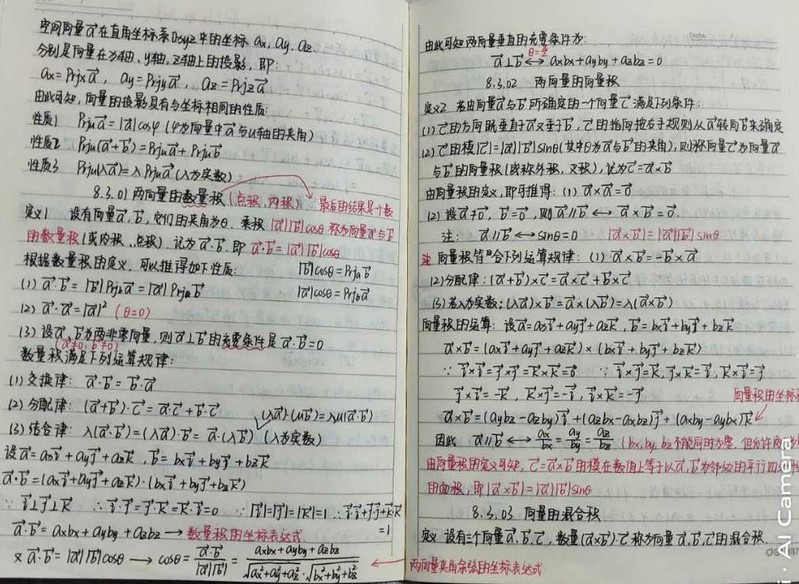 空间向量a⃗在直角坐标系Oxyz中的坐标 ax, ay, az
分别是向量在x轴, y轴, z轴上的投影, 即:
ax=Prjxa⃗, ay=Prjya⃗, az=Prjza⃗
由此可知, 向量的投影具有与坐标相同的性质:
性质1 Prjua⃗=|a⃗|cosφ (φ为向量中a⃗与u轴的夹角)
性质2 Prju(a⃗+b⃗)=Prjua⃗+Prjub⃗
性质3 Prju(λa⃗)=λPrjua⃗ (λ为实数)
8.3.01 两向量的数量积(点积、内积) 最后的结果是个数
定义1 设有向量a⃗, b⃗, 它们的夹角为θ, 乘积|a⃗||b⃗|cosθ 称为向量a⃗与b⃗
的数量积(或内积、点积), 记为a⃗·b⃗, 即 a⃗·b⃗=|a⃗||b⃗|cosθ
根据数量积的定义, 可以推得如下性质: |b⃗|cosθ=Prjab⃗
(1) a⃗·b⃗=|b⃗|Prjba⃗=|a⃗|Prjab⃗ |a⃗|cosθ=Prjba⃗
(2) a⃗·a⃗=|a⃗|² (θ=0)
(3) 设a⃗, b⃗为两非零向量, 则a⃗⊥b⃗的充要条件是 a⃗·b⃗=0
(a⃗≠0, b⃗≠0)
数量积满足下列运算规律:
(1) 交换律: a⃗·b⃗=b⃗·a⃗
(2) 分配律: (a⃗+b⃗)·c⃗=a⃗·c⃗+b⃗·c⃗ (λa⃗)·(μb⃗)=λμ(a⃗·b⃗)
(3) 结合律: λ(a⃗·b⃗)=(λa⃗)·b⃗=a⃗·(λb⃗) (λ为实数)
设a⃗=axi⃗+ayj⃗+azk⃗, b⃗=bxi⃗+byj⃗+bzk⃗
a⃗·b⃗=(axi⃗+ayj⃗+azk⃗)·(bxi⃗+byj⃗+bzk⃗)
∵ i⃗⊥j⃗⊥k⃗ ∴ i⃗·j⃗=j⃗·k⃗=k⃗·i⃗=0 ∵ |i⃗|=|j⃗|=|k⃗|=1 ∴ i⃗·i⃗=j⃗·j⃗=k⃗·k⃗
=1
a⃗·b⃗=axbx+ayby+azbz → 数量积的坐标表达式
又 a⃗·b⃗=|a⃗||b⃗|cosθ → cosθ=a⃗·b⃗/|a⃗||b⃗|=axbx+ayby+azbz/√ax²+ay²+az²·√bx²+by²+bz² 两向量夹角余弦的坐标表达式
由此可知两向量垂直的充要条件为:
a⃗⊥b⃗ ⟷ axbx+ayby+azbz=0
8.3.02 两向量的向量积
定义2 若由向量a⃗与b⃗所确定的一个向量c⃗满足下列条件:
(1) c⃗的方向既垂直于a⃗又垂直于b⃗, c⃗的指向按右手规则从a⃗转向b⃗来确定
(2) c⃗的模|c⃗|=|a⃗||b⃗|sinθ (其中θ为a⃗与b⃗的夹角), 则称向量c⃗为向量a⃗
与b⃗的向量积(或称外积、叉积), 记为c⃗=a⃗×b⃗
由向量积的定义, 即可推得: (1) a⃗×a⃗=0⃗
(2) 设a⃗≠0⃗, b⃗=0⃗, 则a⃗∥b⃗ ⟷ a⃗×b⃗=0⃗.
注: a⃗∥b⃗ ⟷ sinθ=0 |a⃗×b⃗|=|a⃗||b⃗|sinθ
注 向量积符合下列运算规律: (1) a⃗×b⃗=-b⃗×a⃗
(2) 分配律: (a⃗+b⃗)×c⃗=a⃗×c⃗+b⃗×c⃗
(3) 若λ为实数: (λa⃗)×b⃗=a⃗×(λb⃗)=λ(a⃗×b⃗)
向量积的运算: 设a⃗=axi⃗+ayj⃗+azk⃗, b⃗=bxi⃗+byj⃗+bzk⃗
a⃗×b⃗=(axi⃗+ayj⃗+azk⃗)×(bxi⃗+byj⃗+bzk⃗)
∵ i⃗×i⃗=j⃗×j⃗=k⃗×k⃗=0⃗ ∵ i⃗×j⃗=k⃗, j⃗×k⃗=i⃗, k⃗×i⃗=j⃗
j⃗×i⃗=-k⃗, k⃗×j⃗=-i⃗, i⃗×k⃗=-j⃗ 向量积的坐标
a⃗×b⃗=(aybz-azby)i⃗+(azbx-axbz)j⃗+(axby-aybx)k⃗
因此 a⃗∥b⃗ ⟷ ax/bx=ay/by=az/bz (bx, by, bz不能同时为零, 但允许
由向量积的定义可知, c⃗=a⃗×b⃗的模在数值上等于以a⃗, b⃗为邻边的平行四边形
的面积, 即|a⃗×b⃗|=|a⃗||b⃗|sinθ
8.3.03 向量的混合积
定义 设有三个向量a⃗, b⃗, c⃗, 数量(a⃗×b⃗)·c⃗称为向量a⃗, b⃗, c⃗的混合积.
AI Camera